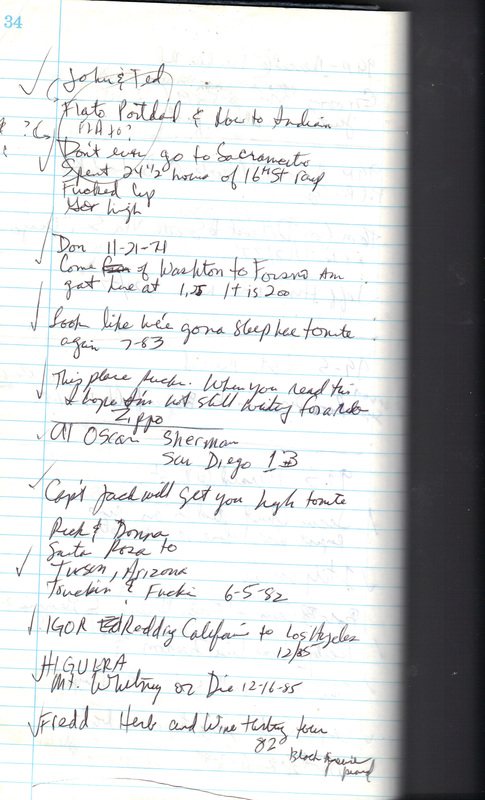 34
John & Ted
Flato Portdal & How to Indian
? FLA to?
Don't ever go to Sacramento
Spent 24 1/2 hours of 16th St ramp
Fucked Cup
high
Don 11-21-71
Come of Washton to Forsno Am
gat hee at 1,25 It is 200
Look like we'e gona sleep hee tonite
again 7-83
This place sucks. When you read this
I hope I'm not still waiting for a ride
Zippo
Al Oscar Sherman
San Diego 13
Cap't Jack will get you high tonite
Rick & Donna
Santa Roza to
Tuson, Arizona
Truckin & Fuckin 6-5-82
IGOR Reddig Califoin to Los Angeles
12/85
HIGUERA
Mt. Whitney or Die 12-16-85
Fredd Herb and Wine tasting tour
82
Black